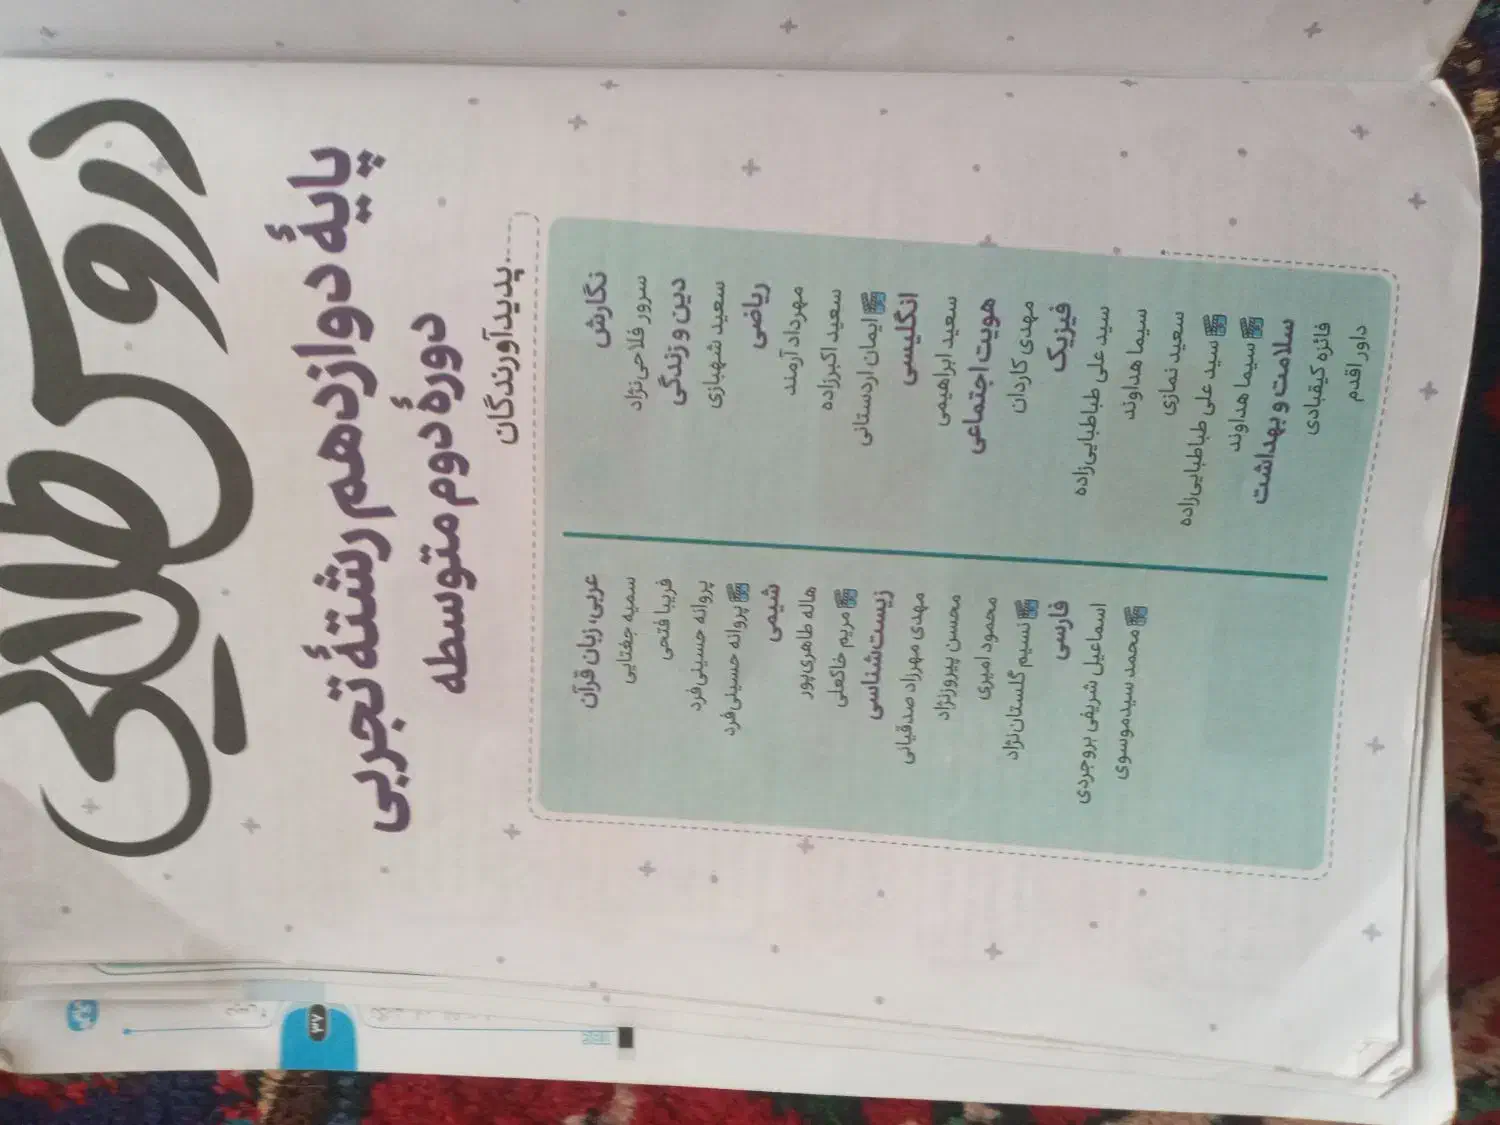 طلایی
پایهٔ دوازدهم رشتهٔ تجربی
دورهٔ دوم متوسطه
پدیدآورندگان
نگارش
سرور فلاحی‌نژاد
دین و زندگی
سعید شهبازی
ریاضی
مهرداد آرمند
سعید اکبرزاده
ایمان اردستانی
انگلیسی
سعید ابراهیمی
هویت اجتماعی
مهدی کاردان
فیزیک
سید علی طباطبایی‌زاده
سیما هداوند
سعید نمازی
سید علی طباطبایی‌زاده
سیما هداوند
سلامت و بهداشت
فائزه کیقبادی
داور اقدم
عربی، زبان قرآن
سمیه جغتایی
فریبا فتحی
پروانه حسینی‌فرد
پروانه حسینی‌فرد
شیمی
هاله طاهری‌پور
مریم خاکعلی
زیست‌شناسی
مهدی مهرزاد صدقیانی
محسن پیروزنژاد
محمود امیری
نسیم گلستان‌نژاد
فارسی
اسماعیل شریفی بروجردی
محمد سیدموسوی
۳۷